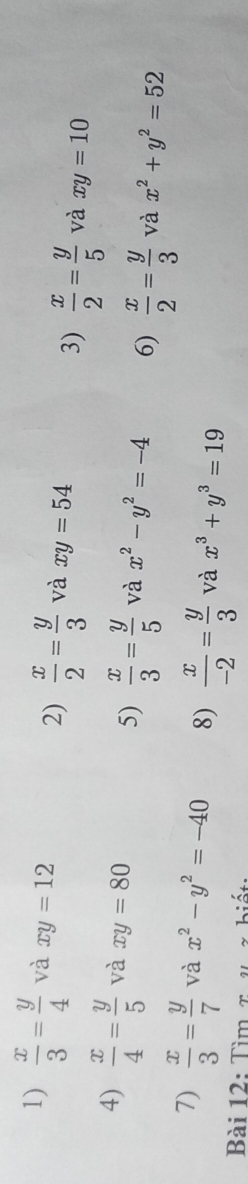 1) x/3 = y/4 và xy = 12 2) x/2 = y/3 và xy = 54 3) x/2 = y/5 và xy = 10
4) x/4 = y/5 và xy = 80 5) x/3 = y/5 và x² − y² = −4 6) x/2 = y/3 và x² + y² = 52
7) x/3 = y/7 và x² − y² = −40 8) x/−2 = y/3 và x³ + y³ = 19
Bài 12: Tìm x, y, z biết: